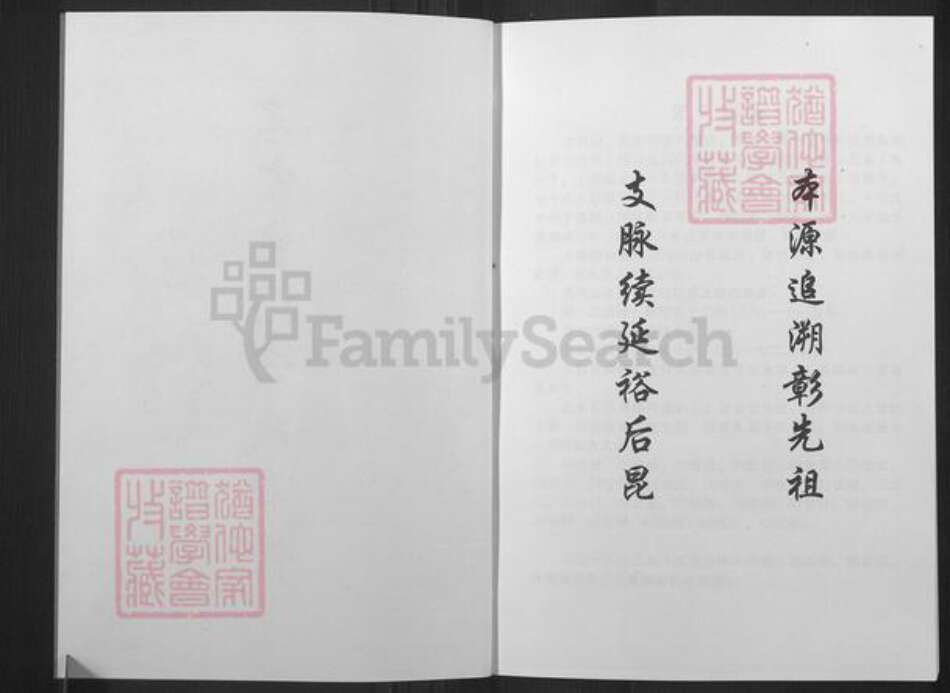 本源追溯彰先祖
支脉续延裕后昆
猶他家
譜學會
收藏
FamilySearch
猶他家
譜學會
收藏